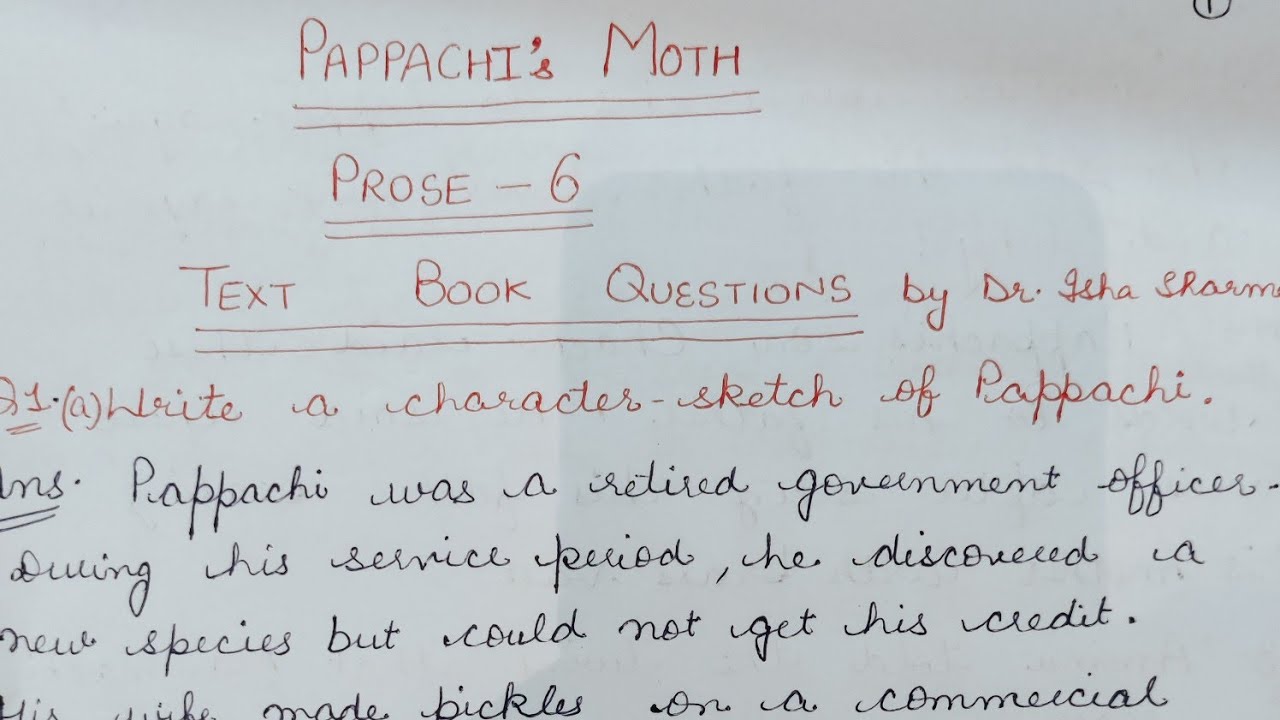 1
PAPPACHI's MOTH
PROSE - 6
TEXT BOOK QUESTIONS by Dr. Isha Sharm
Q1. (a) Write a character-sketch of Pappachi.
Ans. Pappachi was a retired government officer.
During his service period, he discovered a
new species but could not get his credit.
His wife made pickles on a commercial